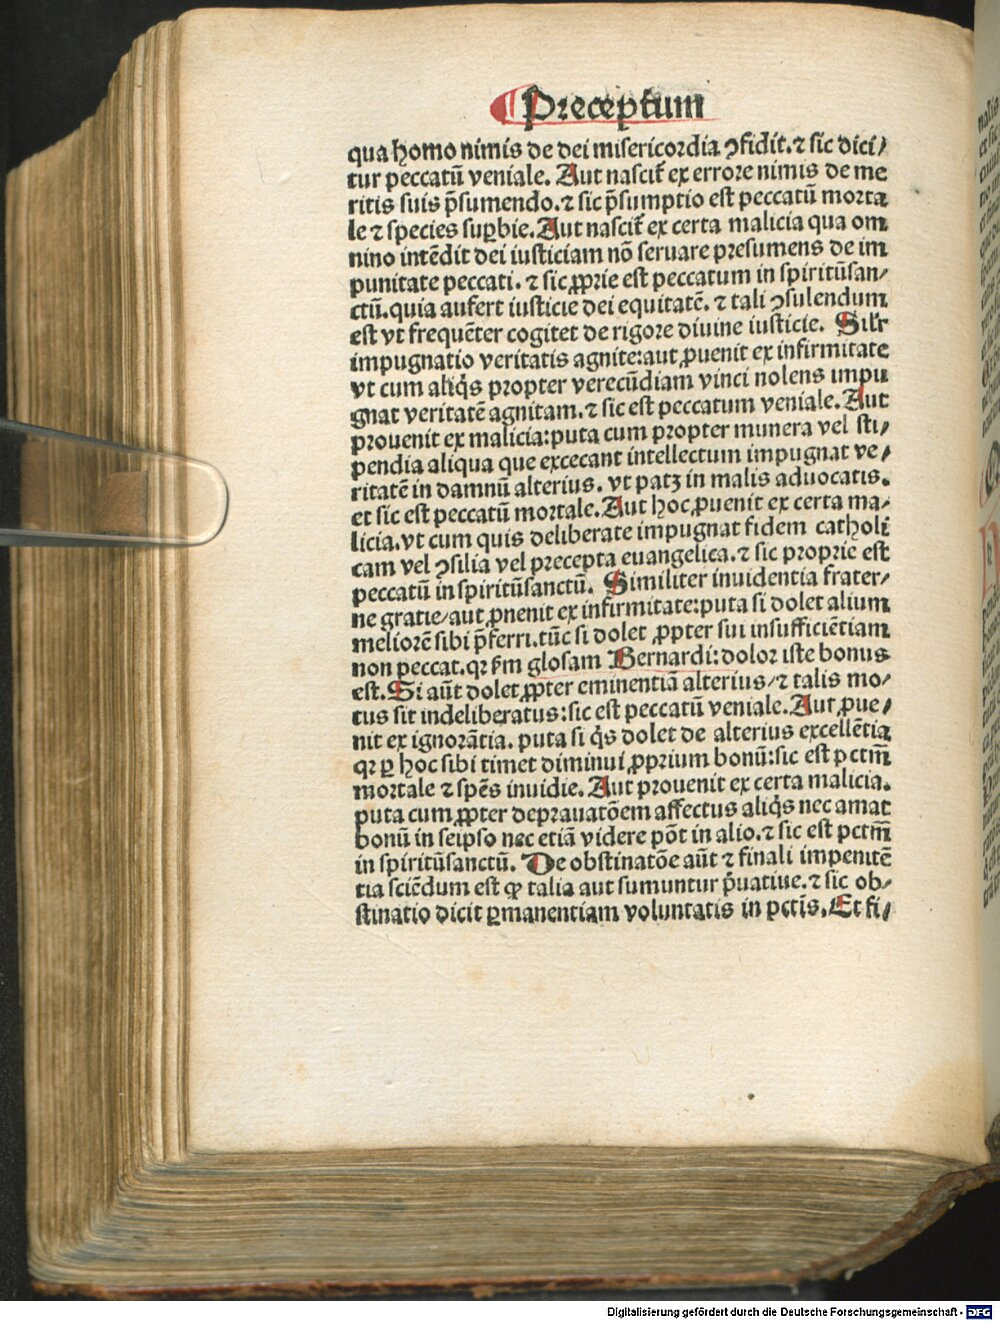 Preceptum
qua homo nimis de dei misericordia ꝯfidit.⁊ sic dici/
tur peccatū veniale. Aut nascit̃ ex errore nimis de me
ritis suis p̄sumendo.⁊ sic p̄sumptio est peccatū morta
le ⁊ species suꝑbie. Aut nascit̃ ex certa malicia qua om
nino intēdit dei iusticiam nō seruare presumens de im
punitate peccati. ⁊ sic ꝓprie est peccatum in spiritūsan/
ctū.quia aufert iusticie dei equitatē. ⁊ tali ꝯsulendum
est vt frequēter cogitet de rigore diuine iusticie. Silr̄
impugnatio veritatis agnite:aut ꝓuenit ex infirmitate
vt cum aliq̇s propter verecūdiam vinci nolens impu
gnat veritatē agnitam.⁊ sic est peccatum veniale. Aut
prouenit ex malicia:puta cum propter munera vel sti/
pendia aliqua que excecant intellectum impugnat ve/
ritatē in damnū alterius. vt patꝫ in malis aduocatis.
et sic est peccatū mortale. Aut hoc ꝓuenit ex certa ma/
licia.vt cum quis deliberate impugnat fidem catholi
cam vel ꝯsilia vel precepta euangelica.⁊ sic proprie est
peccatū in spiritūsanctū. Similiter inuidentia frater/
ne gratie/aut ꝓnenit ex infirmitate:puta si dolet alium
meliorē sibi p̄ferri.tūc si dolet ꝓpter sui insufficiētiam
non peccat.qꝛ ẜm glosam Bernardi:dolor iste bonus
est.Si aūt dolet ꝓpter eminentiā alterius/⁊ talis mo/
tus sit indeliberatus:sic est peccatū veniale.Aut ꝓue/
nit ex ignorātia. puta si q̇s dolet de alterius excellētia
qꝛ ꝑ hoc sibi timet diminui ꝓprium bonū:sic est pctm̄
mortale ⁊ spēs inuidie. Aut prouenit ex certa malicia.
puta cum ꝓpter deprauatōem affectus aliq̇s nec amat
bonū in seipso nec etiā videre pōt in alio.⁊ sic est pctm̄
in spiritūsanctū. De obstinatōe aūt ⁊ finali impenitē
tia sciēdum est ꝙ talia aut sumuntur p̄uatiue.⁊ sic ob/
stinatio dicit ꝑmanentiam voluntatis in pctīs.Et fi/
Digitalisierung gefördert durch die Deutsche Forschungsgemeinschaft - DFG